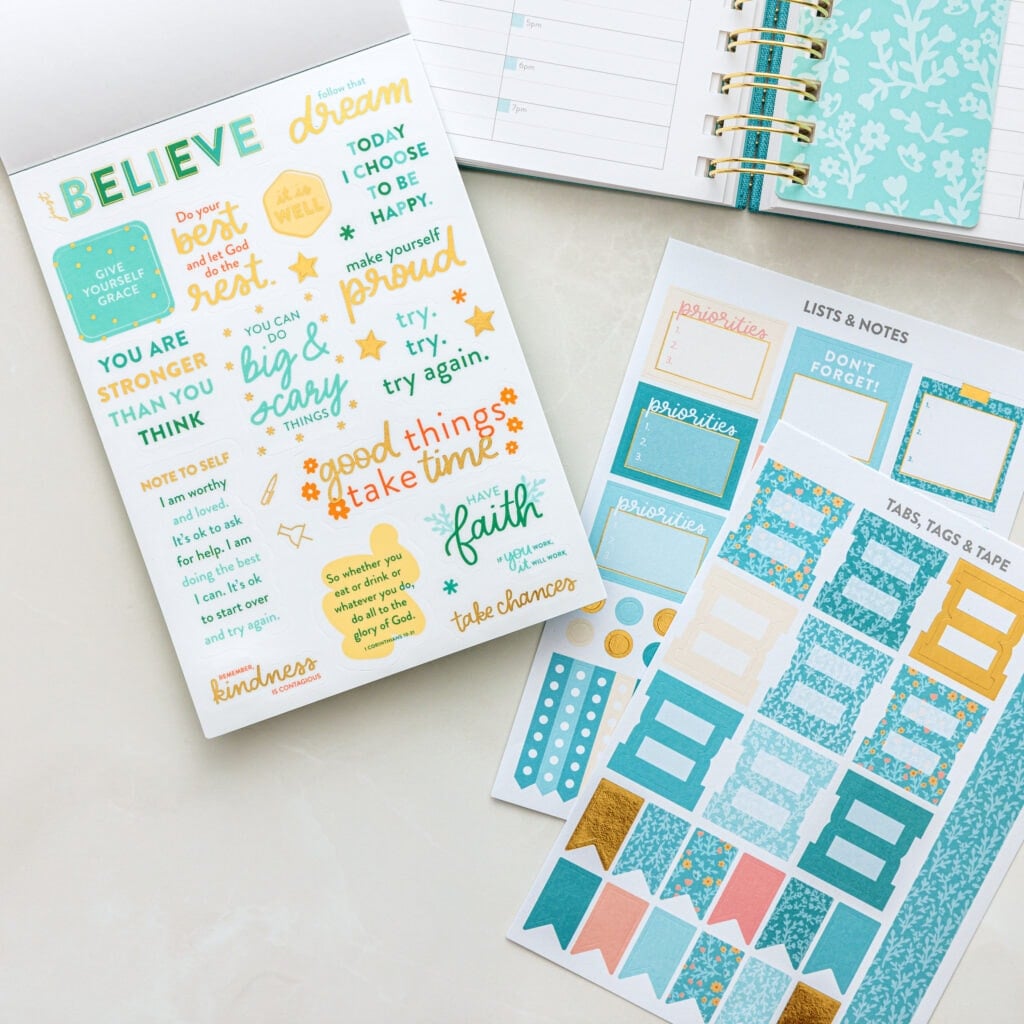 5pm
6pm
7pm
follow that
dream
just
BELIEVE
TODAY
I CHOOSE
TO BE
HAPPY.
it is
WELL
Do your
best
and let God
do the
rest.
GIVE
YOURSELF
GRACE
make yourself
proud
YOU CAN
DO
big &
scary
THINGS
try.
try.
try again.
YOU ARE
STRONGER
THAN YOU
THINK
good things
take time
NOTE TO SELF
I am worthy
and loved.
It's ok to ask
for help. I am
doing the best
I can. It's ok
to start over
and try again.
HAVE
faith
IF YOU WORK,
IT WILL WORK
So whether you
eat or drink or
whatever you do,
do all to the
glory of God.
1 CORINTHIANS 10:31
take chances
REMEMBER,
kindness
IS CONTAGIOUS
LISTS & NOTES
priorities
1.
2.
3.
DON'T
FORGET!
priorities
1.
2.
3.
1.
2.
3.
priorities
1.
2.
3.
TABS, TAGS & TAPE